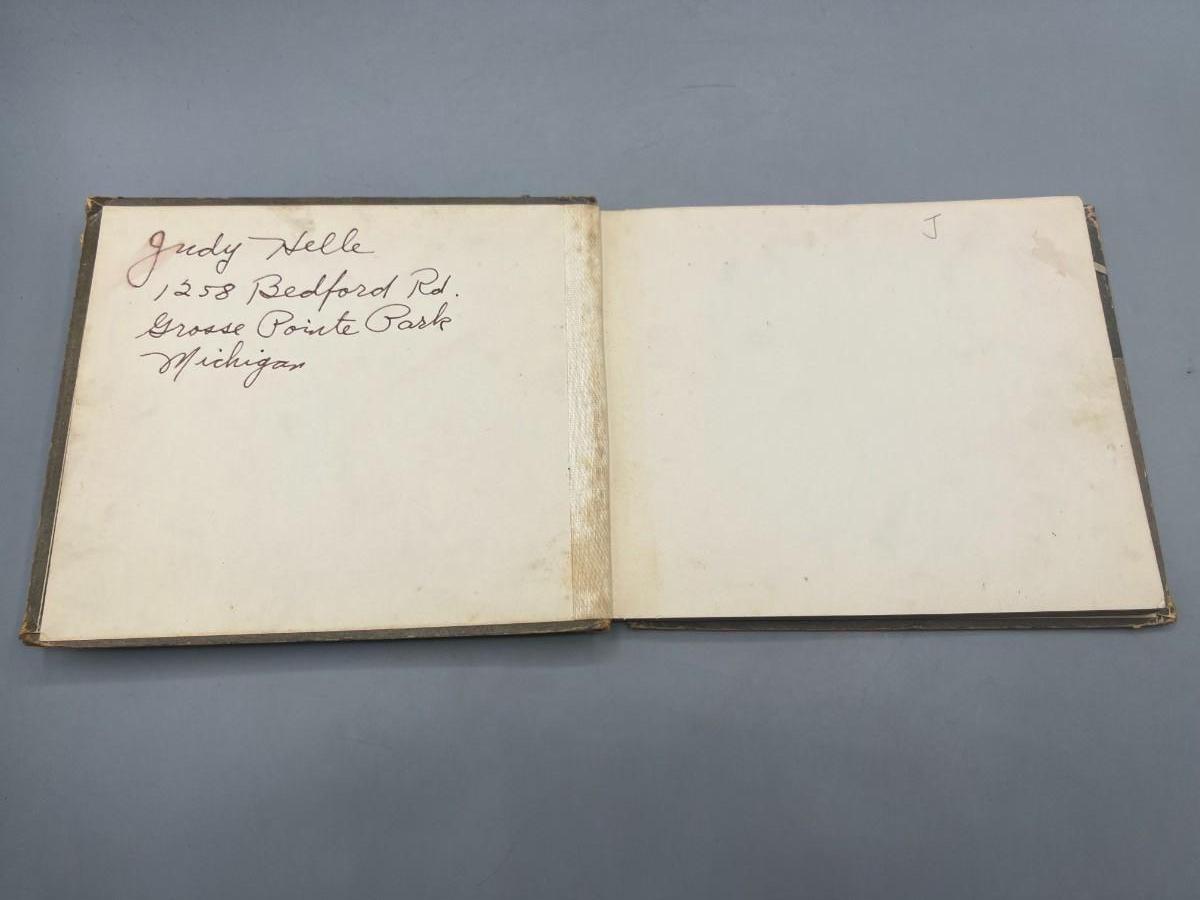 Judy Helle
1258 Bedford Rd.
Grosse Pointe Park
Michigan
J